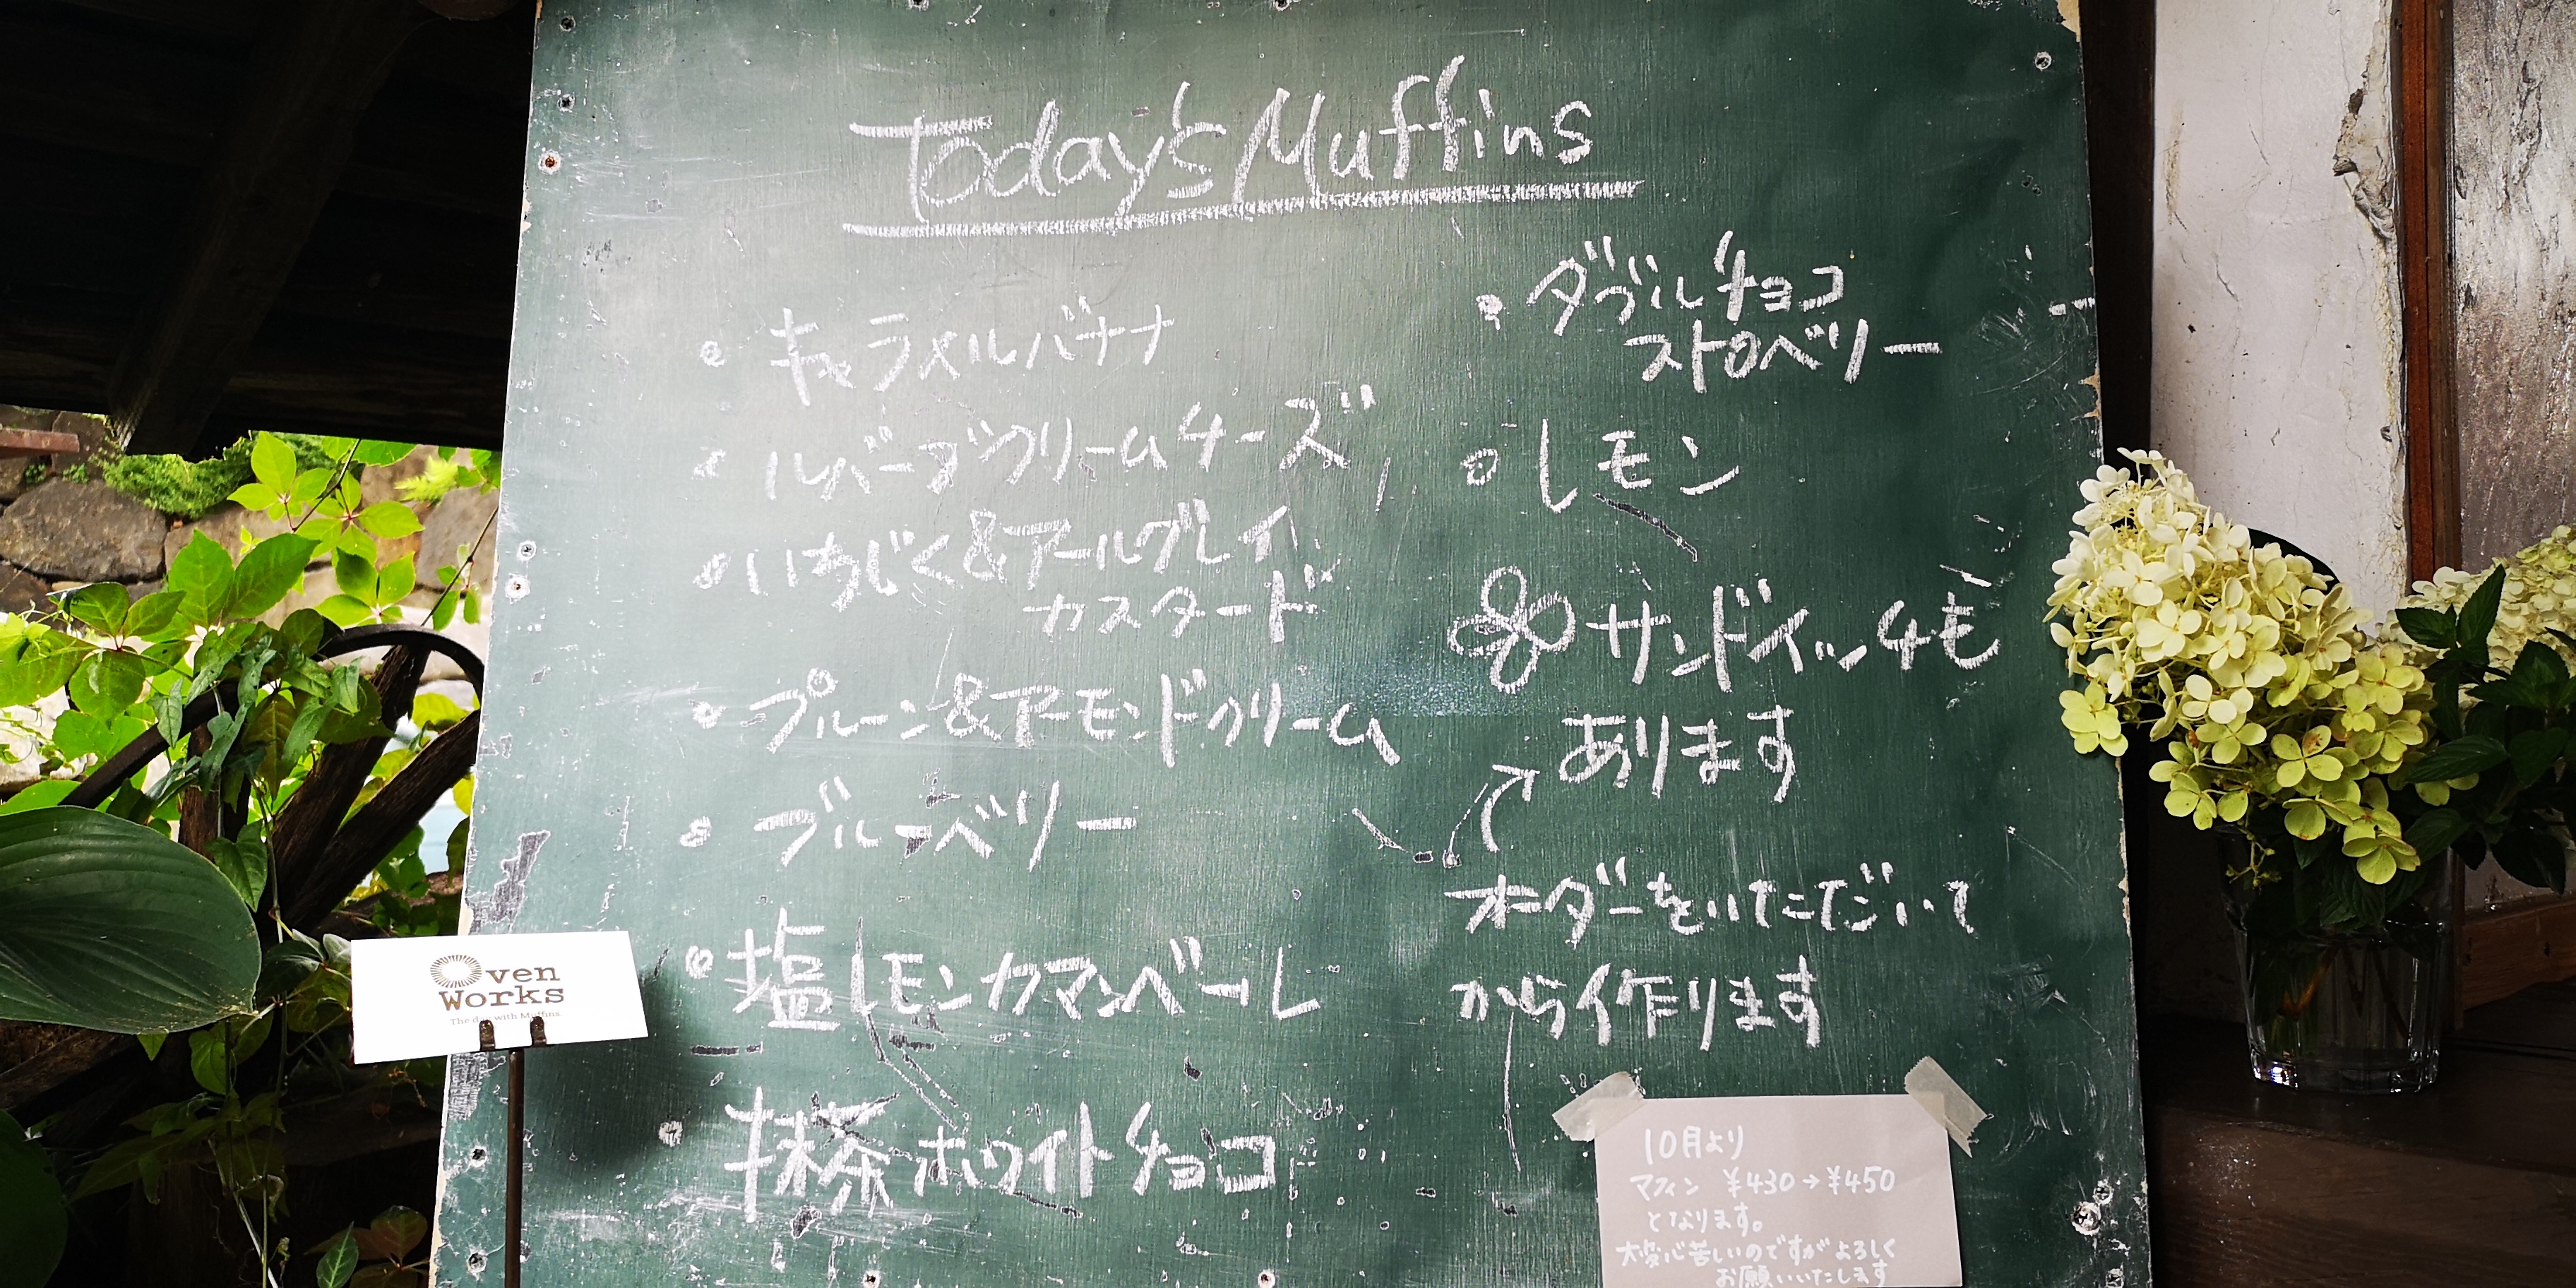 Today's Muffins
・キャラメルバナナ
・ルバーブクリームチーズ
・いちじく&アールグレイ
カスタード
・プルーン&アーモンドクリーム
・ブルーベリー
・塩レモンカマンベール
・抹茶ホワイトチョコ
・ダブルチョコ
ストロベリー
・レモン
サンドイッチも
あります
オーダーをいただいて
から作ります
10月より
マフィン ¥430→¥450
となります。
大変心苦しいのですがよろしく
お願いいたします
Oven
Works
The day with Muffins.